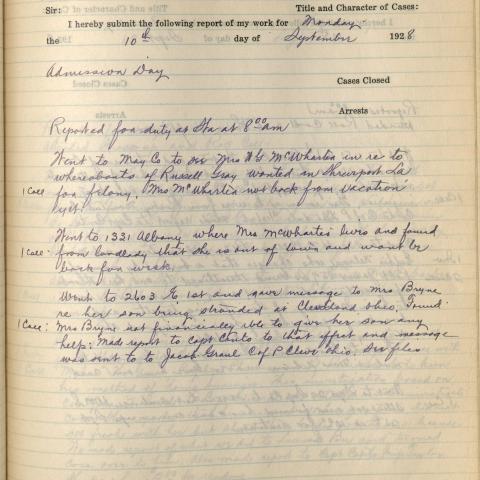 Sir: Title and Character of Cases:
I hereby submit the following report of my work for Monday
the 10th day of September 1928.
Admission Day
Cases Closed
Arrests
Reported for duty at Sta at 8 00 am
Went to May Co to see Mrs McWhartia in re to
whereabouts of Russell Gay wanted in Shreveport La
1 Call for felony. Mrs McWhartia not back from vacation
yet.
Went to 1331 Albany where Mrs McWhartia lives and found
1 Call: from landlady that she is out of town and wont be
back for week.
Went to 2603 E, 1st and gave message to Mrs Bryne
re her son being stranded at Cleveland Ohio. Found
1 Call: Mrs Bryne not financially able to give her son any
help: Made report to Capt to that effect and message
was sent to to Jacob Graul C of P Cleve Ohio. See files